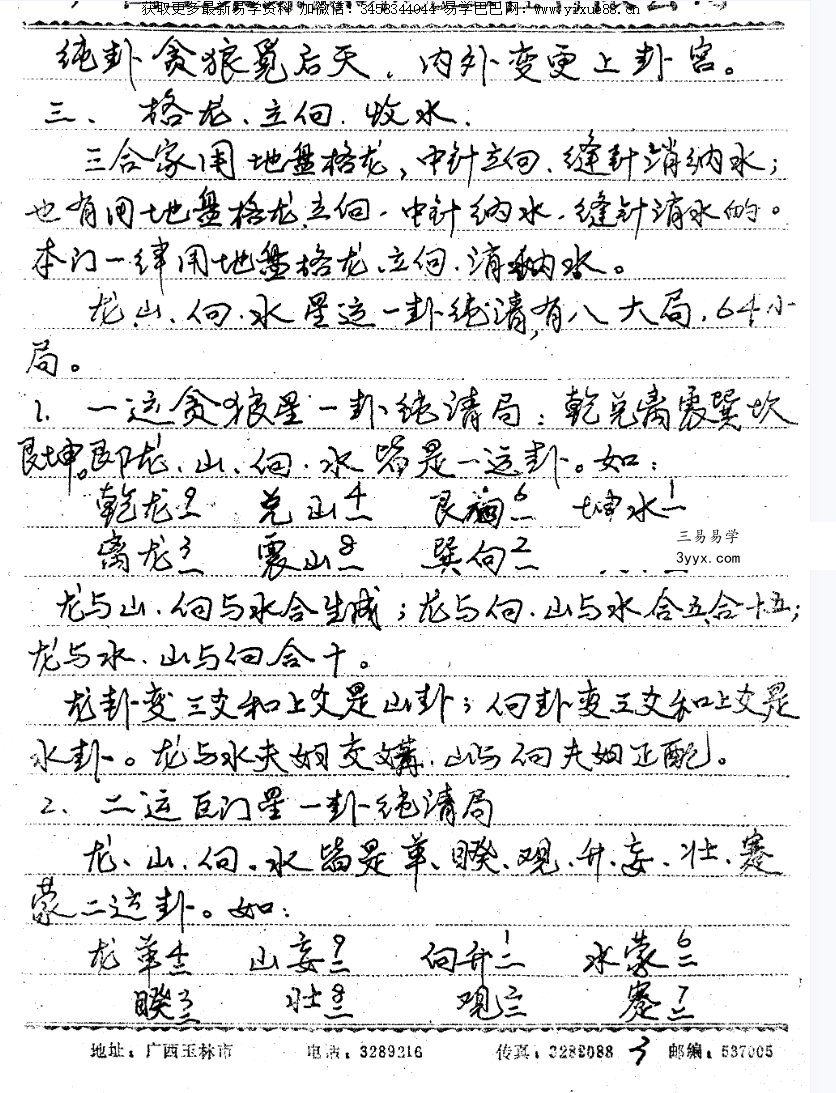 获取更多最新易学资料 加微信：3458344044 易学巴巴网：www.yixue88.cn
纯卦贪狼觅后天，内外变更上卦宫。
三、格龙、立向、收水：
三合家用地盘格龙，中针立向、缝针消纳水；
也有用地盘格龙立向，中针纳水，缝针消水的。
本门一律用地盘格龙、立向、消纳水。
龙、山、向、水星运一卦纯清，有八大局，64小
局。
1、一运贪狼星一卦纯清局：乾兑离震巽坎
艮坤。即龙、山、向、水皆是一运卦。如：
乾龙9一 兑山4一 艮向6一 坤水1一
三易易学
3yyx.com
离龙3一 震山8一 巽向2一 ....
龙与山、向与水合生成；龙与向、山与水合五合十五；
龙与水、山与向合十。
龙卦变三爻和上爻是山卦；向卦变三爻和上爻是
水卦。龙与水夫妇交媾，山与向夫妇正配。
2、二运巨门星一卦纯清局
龙、山、向、水皆是革、睽、观、升、妄、壮、蹇
蒙二运卦。如：
龙革4二 山妄9二 向升1二 水蒙6二
睽3二 壮8二 观2二 蹇7二
地址：广西玉林市 电话：3289216 传真：3282088 3 邮编：537005